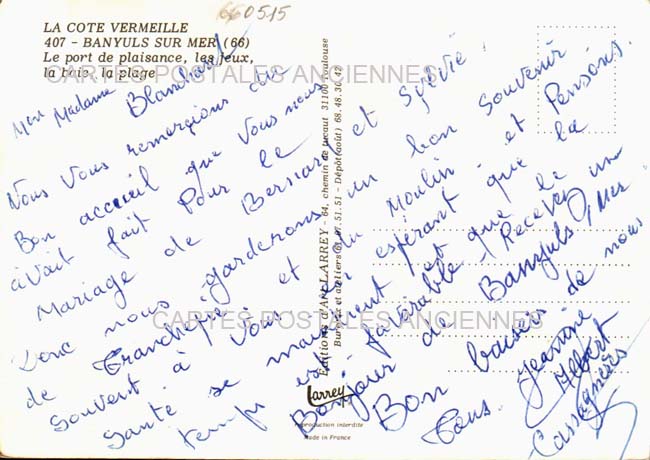 660515
LA COTE VERMEILLE
407 - BANYULS SUR MER (66)
Le port de plaisance, les jeux,
la baie, la plage
CARTES POSTALES ANCIENNES
Madame Blanchard
Nous Vous remercions du
Bon accueil que Vous nous
avait fait Pour le
Mariage de Bernard et Sylvie.
Donc nous garderons un bon Souvenir
de Tranchepie et du Moulin. et Pensons.
Souvent à Vous en espérant que la
Santé se maintient et que le
temps est favorable - Recevez un
Bonjour de Banyuls/Mer
Bon baisers de nous
Tous. Jeanine
Albert
Cassagneres
CARTES POSTALES ANCIENNES
Editions d'Art LARREY - 64, chemin de 31100 Toulouse
Bureaux et ateliers 61.47.51.51 - Dépôt (août) 68.48.30.42
Larrey
reproduction interdite
Made in France